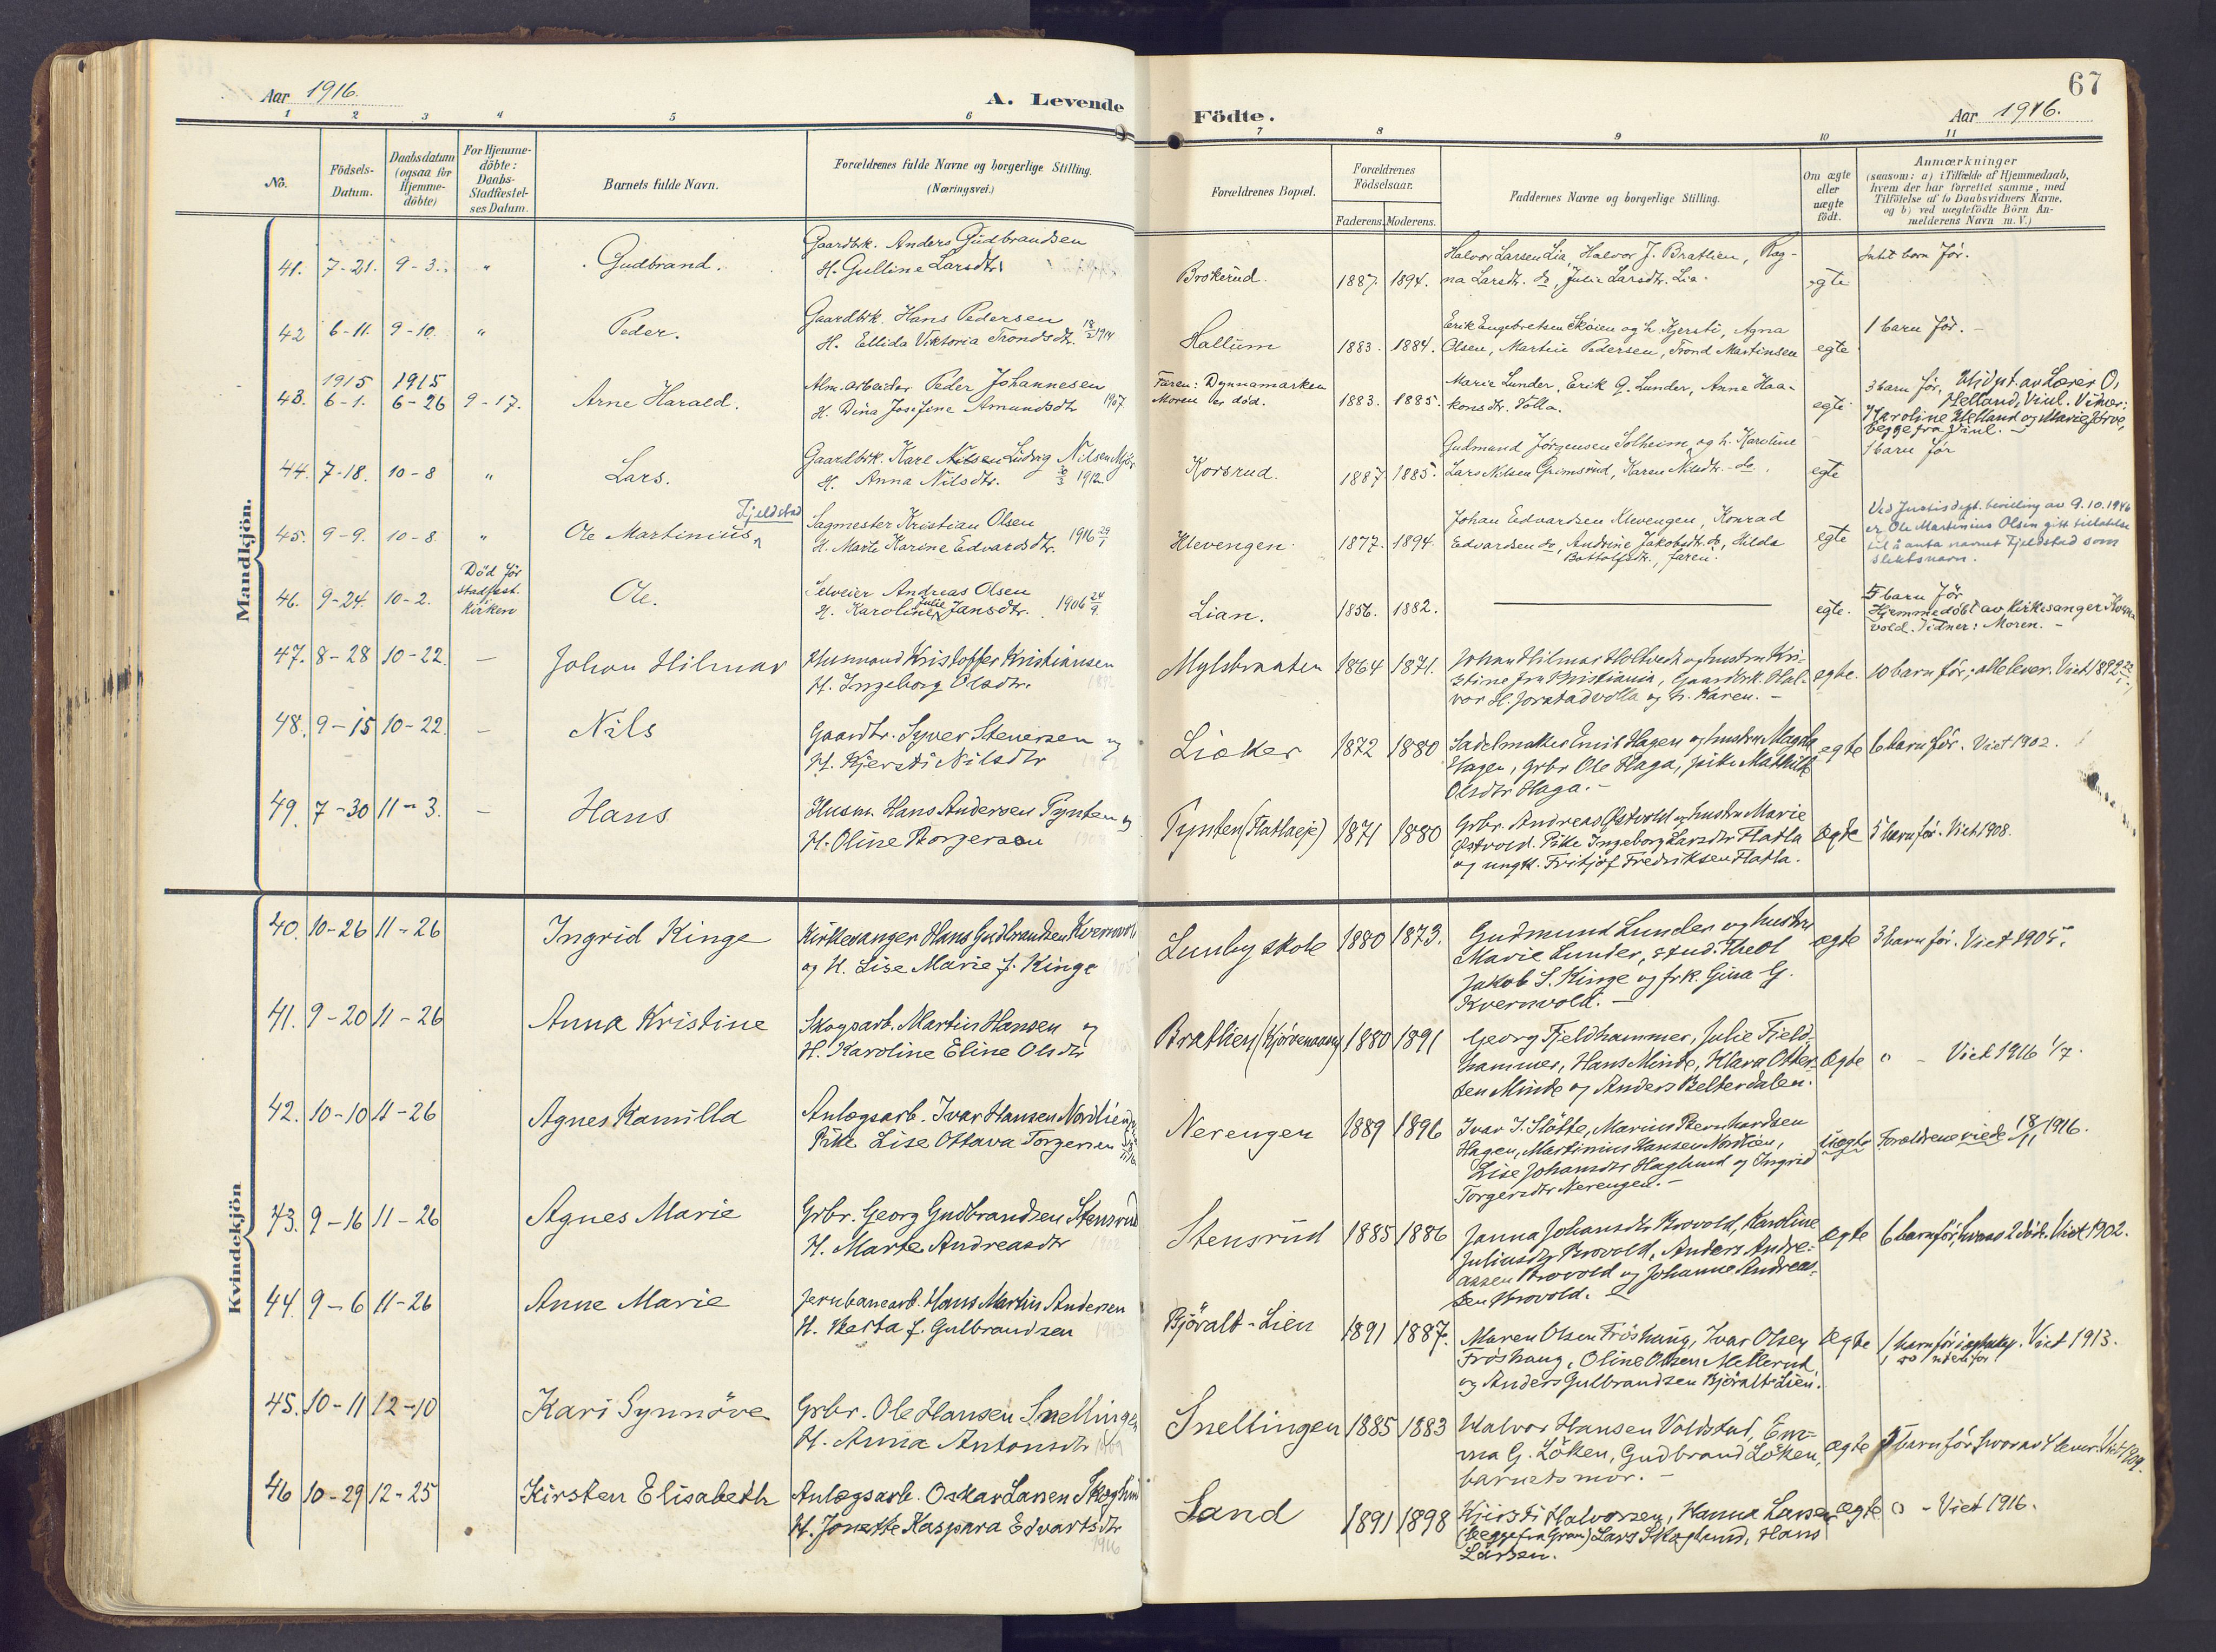 67
Aar 1916.
A. Levende
Födte.
Aar 1916.
1 2 3 4 5 6 7 8 9 10 11
No.
Födsels-
Datum.
Daabsdatum
(ogsaa for
Hjemme-
döbte)
For Hjemme-
döbte:
Daabs-
Stadfæstel-
ses Datum.
Barnets fulde Navn.
Forældrenes fulde Navne og borgerlige Stilling.
(Næringsvei.)
Forældrenes Bopæl.
Forældrenes
Födselsaar.
Faderens. Moderens.
Faddernes Navne og borgerlige Stilling.
Om ægte
eller
uægte
födt.
Anmærkninger
(saasom: a) i Tilfælde af Hjemmedaab,
hvem der har forrettet samme, med
Tilföielse af to Daabsvidners Navne,
og b) ved uægtefödte Börn An-
melderens Navn m. V.)
Mandkjön.
41. 7-21. 9-3. "
Gudbrand.
Gaardbk. Anders Gudbrandsen
H. Gulline Larsdtr.
Brokerud.
1887. 1894.
Halvor Larsen Lia, Halvor J. Bratlien, Rag-
na Larsdtr. do, Julie Larsdtr. Lia.
egte
Intet barn før.
42 6-11. 9-10. "
Peder.
Gaardbk. Hans Pedersen
H. Ellida Viktoria Trondsdtr. 1914
Hallum
1883. 1884.
Erik Engebretsen Skøien og h. Kjersti, Agna
Olsen, Martin Pedersen, Trond Martinsen
egte
1 barn før. -
43. 1915 6-1. 1915 6-26 9-17.
Arne Harald.
Alm. arbeider Peder Johannesen
H. Dina Josefine Amundsdtr 1907
Faren: Dynnamarken
Moren er død.
1883. 1885.
Marie Lunder, Erik G. Lunder, Anne Haa-
konsdtr. Volla.
egte
3 barn før. Hjdpt. av Lærer O.
Helland, Vinl. Vidner:
Karoline Helland og Marie
begge fra Vinl. -
44. 7-18. 10-8 "
Lars.
Gaardbk. Karl Ludvig Nilsen
H. Anna Nilsdtr. 1912
Korsrud.
1887 1885.
Gudmund Jørgensen Solheim og h. Karoline
Lars Nilsen Grimsrud, Karen Nilsdtr. do.
egte
1 barn før
45. 9-9. 10-8. "
Fjeldstad
Ole Martinius
Sagmester Kristian Olsen
H. Marte Karine Edvardsdtr. 1916 29/1
Klevengen
1877. 1894.
Johan Edvardsen Klevengen, Konrad
Edvardsen do, Andrine Jakobsdtr. do, Hilda
Bottolfsdtr., faren.
egte
Ved Justisdept. bevilling av 9.10.1946
er Ole Martinius Olsen gitt tillatelse
til å anta navnet Fjeldstad som
slektsnavn.
46. 9-24. 10-2.
Död för
stadfest.
Kirken
Ole.
Selveier Andreas Olsen
H. Karoline Julie Jansdtr. 1906 24/9
Lian.
1856. 1882.
egte.
5 barn før
Hjemmedøbt av Kirkesanger Kvern-
vold. Vidner: Moren. -
47. 8-28 10-22. -
Johan Hilmar
Husmand Kristoffer Kristiansen
H. Ingeborg Olsdtr.
Mylsbraaten
1864 1871.
Johan Hilmar Holtvedt og hustru Kri-
stine fra Kristiania, Gaardbk. Hal-
vor H. Jorstadvolla og h. Karen. -
egte.
10 barn før; alle lever. Viet 1892
48. 9-15 10-22. -
Nils
Gaardbr. Syver Steversen og
H. Kjersti Nilsdtr
Lioker
1872 1880
Sadelmaker Emil Hagen og hustru Magda
Hagen, grbr. Ole Haga, pike Mathilde
Olsdtr Haga. -
egte
6 barn før. Viet 1902.
49. 7-30 11-3. -
Hans
Husm. Hans Andersen Pynten og
H. Oline Borgerson
Pynten (Flatlaeje)
1871 1880
Grbr. Andreas Østvold og hustru Marie
Østvold. Pike Ingeborg Larsdtr Flatla
og ungk. Fritjof Fredriksen Flatla.
ægte
5 barn før. Viet 1908.
Kvindekjön
40. 10-26 11-26
Ingrid Kinge
Kirkesanger Hans Gudbrandsen Kvernvold
og H. Lise Marie f. Kinge
Lunby skole
1880 1873.
Gudmund Lunder og hustru
Marie Lunder, stud. theol
Jakob S. Kinge og frk. Gina G.
Kvernvold. -
ægte
3 barn før. Viet 1905.
41. 9-20 11-26
Anna Kristine
Skogsarb. Martin Hansen og
H. Karoline Eline Olsdtr
1880 1891
Georg Fjeldhammer, Julie Fjeld-
hammer, Hans Minde, Klara Otter-
sen Minde og Anders Belterdalen.
ægte
0 - Viet 1916 1/7.
42. 10-10 11-26
Agnes Kamilla
Anlægsarb. Ivar Hansen Nordlien
Pike Lise Ottava Torgersen
Nerengen
1889 1896
Ivar J. Slåtte, Marius Bernhardsen
Hagen, Martinius Hansen Nordlien,
Lise Johansdtr Haglund og Ingrid
Torgersdtr Nerengen. -
uægte
Forældrene viede 18/11 1916.
43. 9-16 11-26
Agnes Marie
Grbr. Georg Gudbrandsen Stensrud
H. Marte Andreasdtr
Stensrud
1885 1886
Janna Johansdtr Brovold, Karoline
Juliusdtr Brovold, Anders Andre-
assen Brovold og Johanne Andreas-
sen Brovold.
ægte
6 barn før, hvoraf 2 død. Viet 1902.
44. 9-6 11-26
Anne Marie
Jernbanearb. Hans Martin Andersen
H. Berta f. Gulbrandsen 1913
Bjøralt-Lien
1891 1887.
Maren Olsen Frøshaug, Ivar Olsen
Frøshaug, Oline Olsen Mellerud,
og Anders Gulbrandsen Bjøralt-Lien.
ægte
1 barn før i egteskap. Viet 1913.
1 do utenfor
45. 10-11 12-10
Kari Synnöve
Grbr. Ole Hansen Snellingen
H. Anna Antonsdtr 1909
Snellingen
1885 1883
Halvor Hansen Voldstad, Em-
ma G. Löken, Gudbrand Löken,
barnets mor. -
ægte
5 barn før hvorav 4 lever. Viet 1909.
46 10-29 12-25
Kirsten Elisabeth
Anlægsarb. Oskar Larsen Skoglund
H. Josette Kaspara Edvartsdtr
1916
Sand
1891 1898
Kjersti Halvorsen, Hanna Larsen
(begge fra Gran) Lars Skoglund, Hans
Larsen.
ægte
0 - Viet 1916.